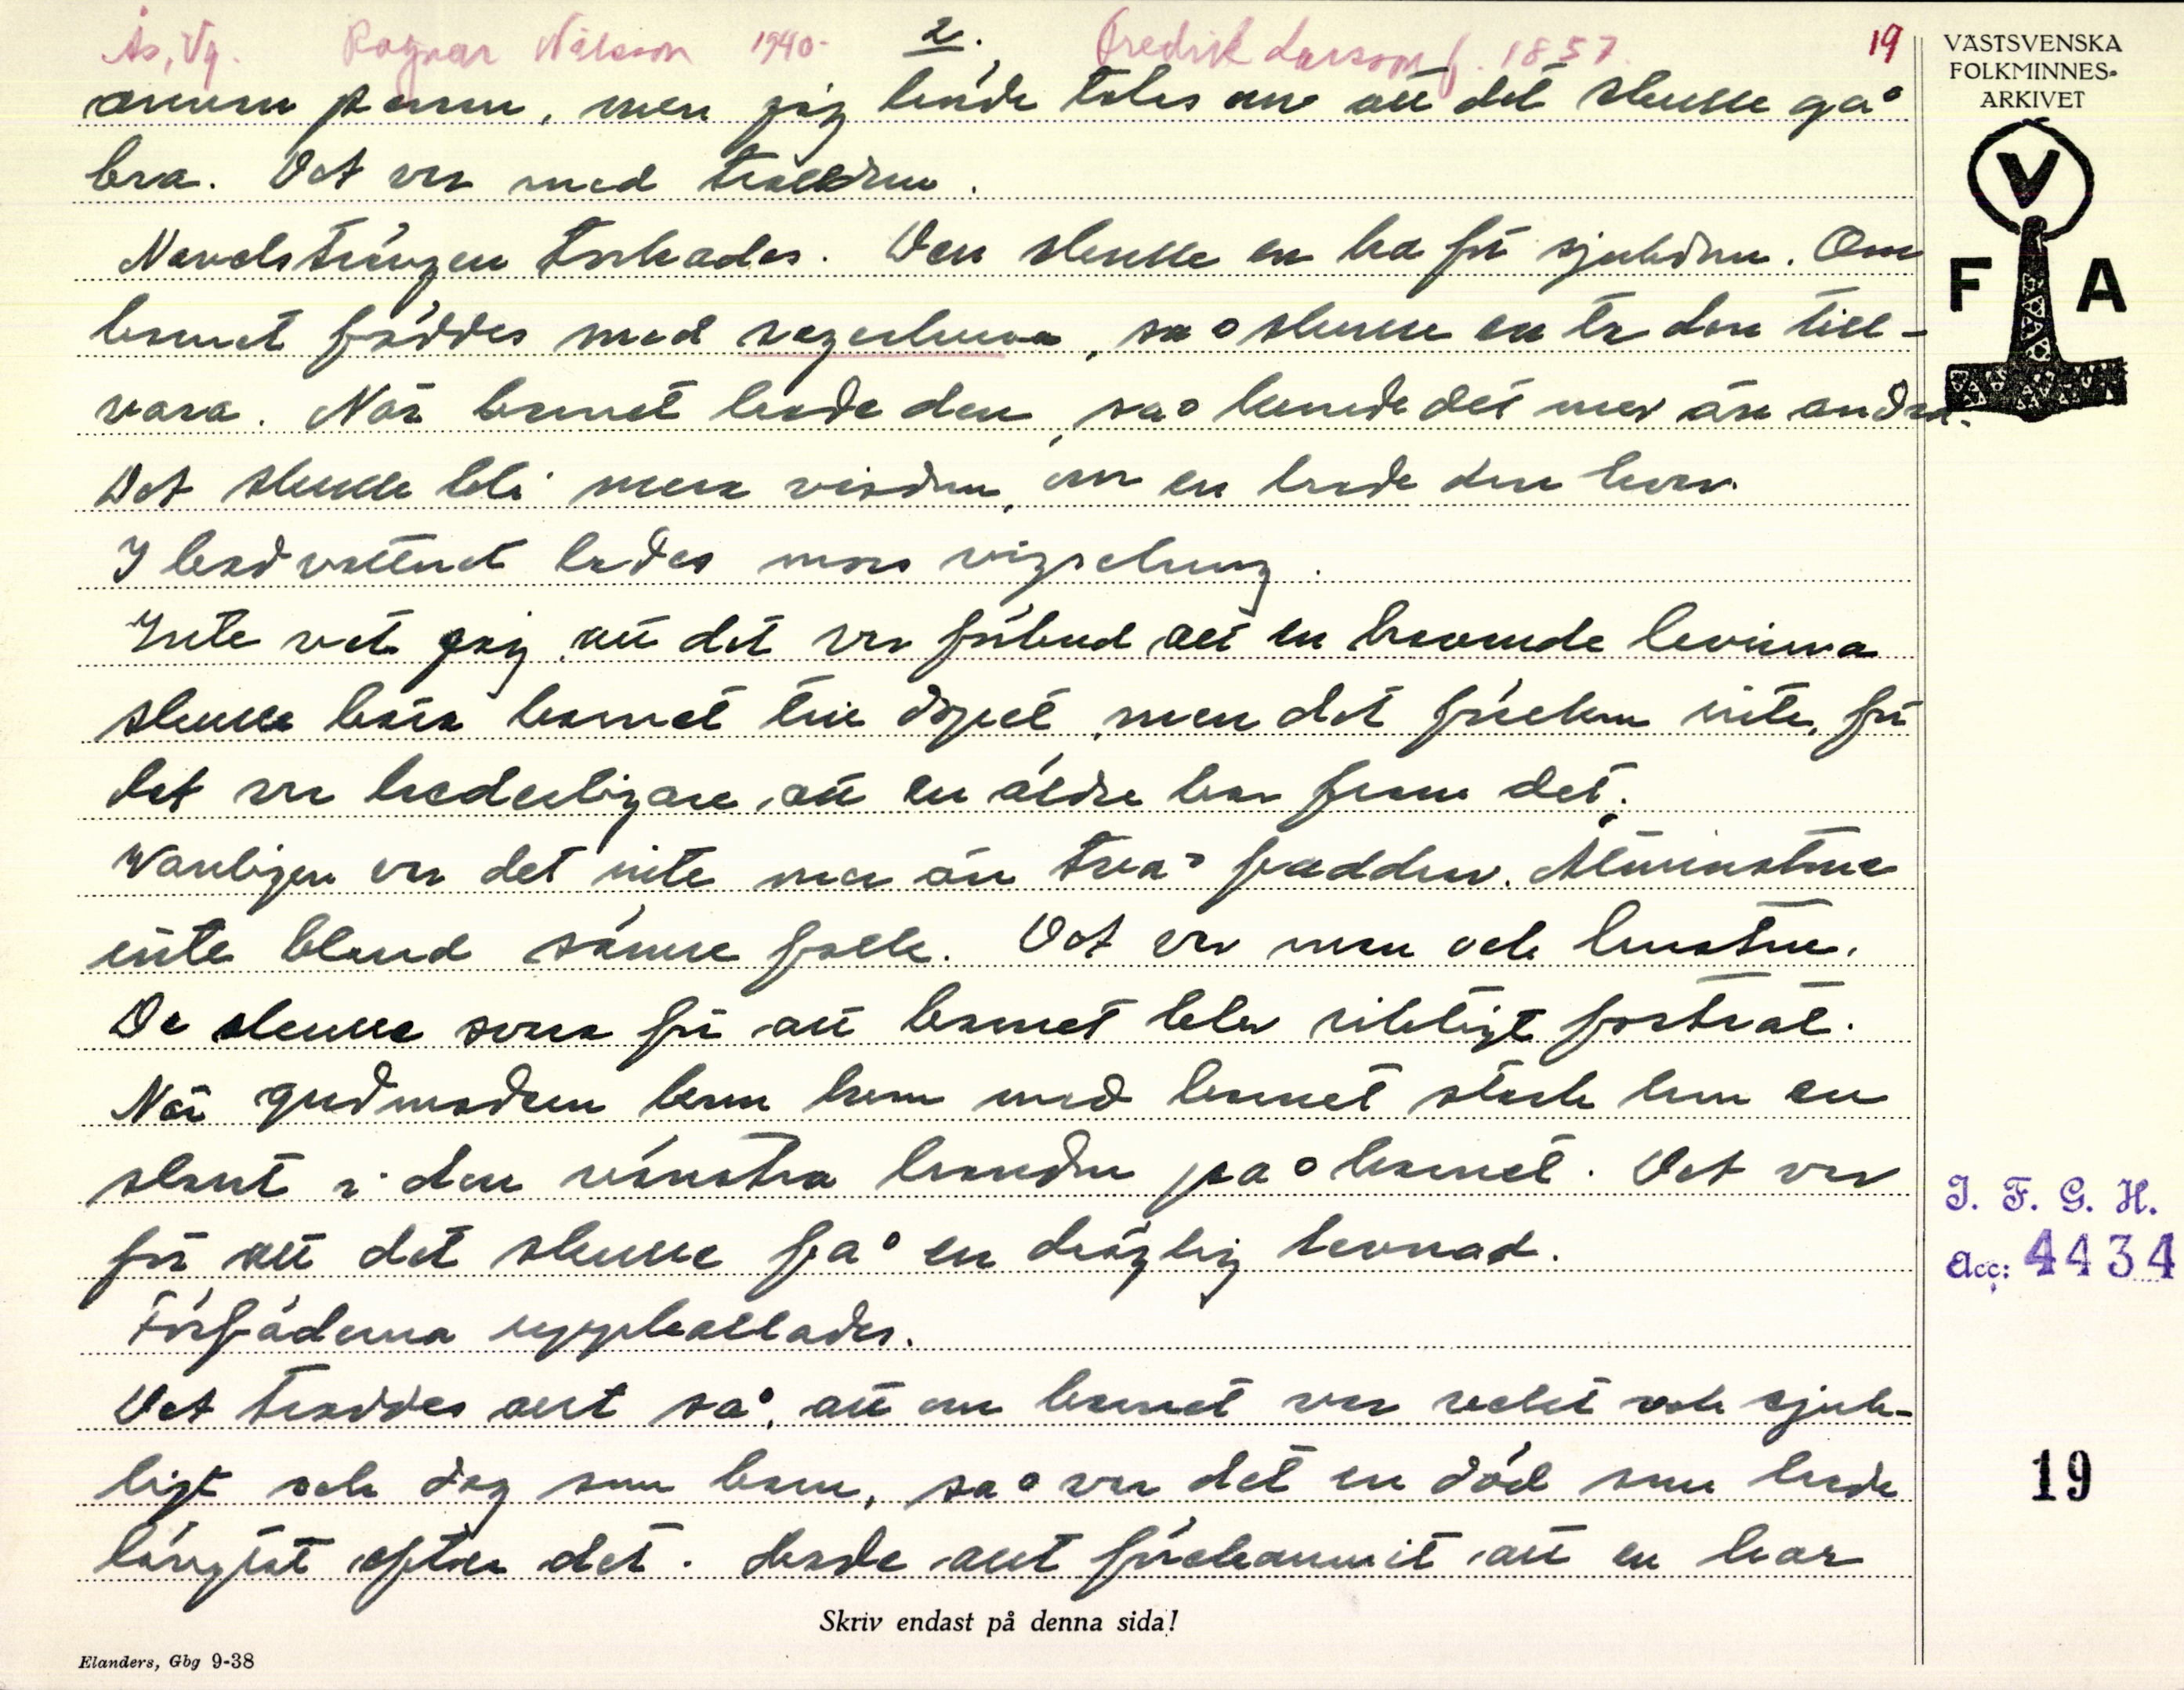 Ås, Vg. Ragnar Nilsson 1940. 2. Fredrik Larsson f. 1857. 19
annan panna, men jag hörde tales om att det skulle gå
bra. Det var med trolldom.
Navelsträngen torkades. Den skulle en ha för sjukdom. Om
barnet föddes med segerhuva, så skulle en ta den till-
vara. När barnet hade den, så kunde det mer än andra.
Det skulle bli mera visdom, om en hade den kvar.
I badvattnet lades mors vigselring.
Inte vet jag, att det var förbud att en havande kvinna
skulle bära barnet till dopet, men det förekom inte, för
det var hederligare, att en äldre bar fram det.
Vanligen var det inte mer än två faddrar. Åtminstone
inte bland sämre folk. Det var man och hustru.
De skulle svara för att barnet blev riktigt fostrat.
När gudmodern kom hem med barnet stack hon en
slant i den vänstra handen på barnet. Det var
för att det skulle få en dräglig levnad.
Förfäderna uppkallades.
Det troddes allt så, att om barnet var vekt och sjuk-
ligt och dog som barn, så var det en död som hade
längtat efter det. Hade allt förekommit att en har
Skriv endast på denna sida!
Elanders, Gbg 9-38
VÄSTSVENSKA
FOLKMINNES-
ARKIVET
V
F A
I. F. G. H.
Acc: 4434
19